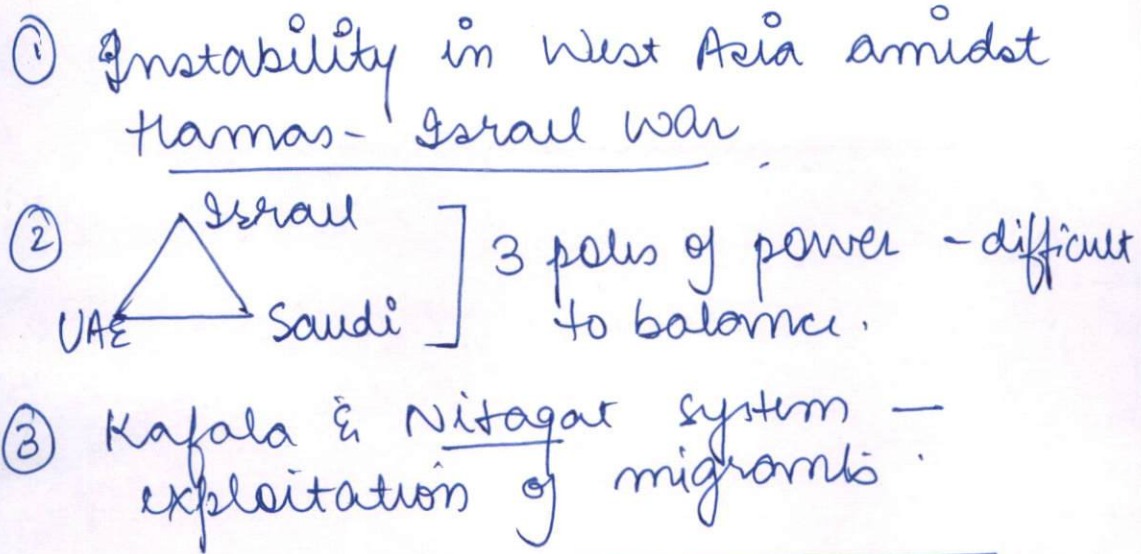 ① Instability in West Asia amidst
Hamas - Israel war.
② Israel
UAE Saudi ] 3 poles of power - difficult
to balance.
③ Kafala & Nitaqat system -
exploitation of migrants.